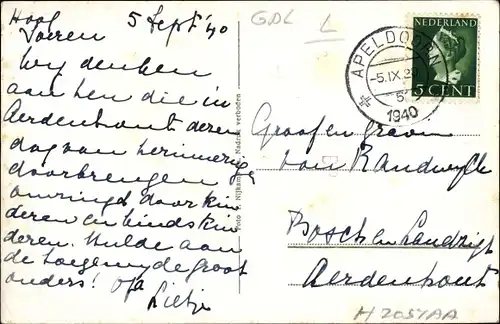 Hoog
Soeren 5 Sept '40
Wij denken
aan hen die in
Aerdenhout deren
dag van herinnering
doorbrengen
omringd door kin
deren en kindskin
deren. Hulde aan
de toegewyde groot
ouders! Opa
Lietje
Foto J. Nijkamp Nadruk verboden
GDL L
APELDOORN
-5.IX.20
5
1940
NEDERLAND
5 CENT
Graaf en gravin
van Randwyck
Bosch en Landzigt
Aerdenhout
H2051AA